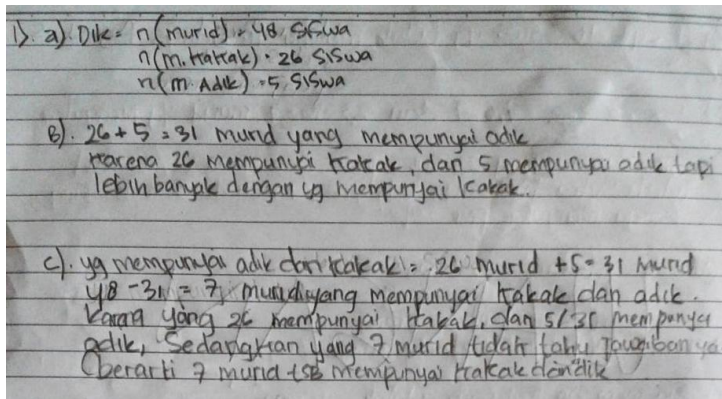 1). a). Dik = n (murid) = 48 Siswa
n(m. kakak) = 26 Siswa
n(m. Adik) = 5 Siswa
B). 26 + 5 = 31 murid yang mempunyai adik
karena 26 Mempunyai kakak, dan 5 mempunyai adik tapi
lebih banyak dengan yg mempunyai kakak.
c). yg mempunyai adik dan kakak = 26 murid + 5 = 31 murid
48 - 31 = 7 murid yang mempunyai kakak dan adik.
karna yang 26 mempunyai kakak, dan 5/31 mempunyai
adik, Sedangkan yang 7 murid tidak tahu
(berarti 7 murid tsb mempunyai kakak dan adik